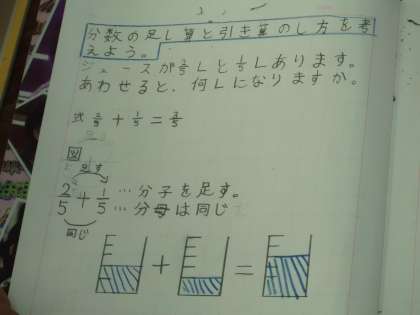 分数の足し算と引き算のし方を考
えよう。
ジュースが2/5Lと1/5Lあります。
あわせると、何Lになりますか。
式 2/5 + 1/5 = 3/5
図
足す
2/5 + 1/5 …分子を足す。
…分母は同じ
同じ
+ =